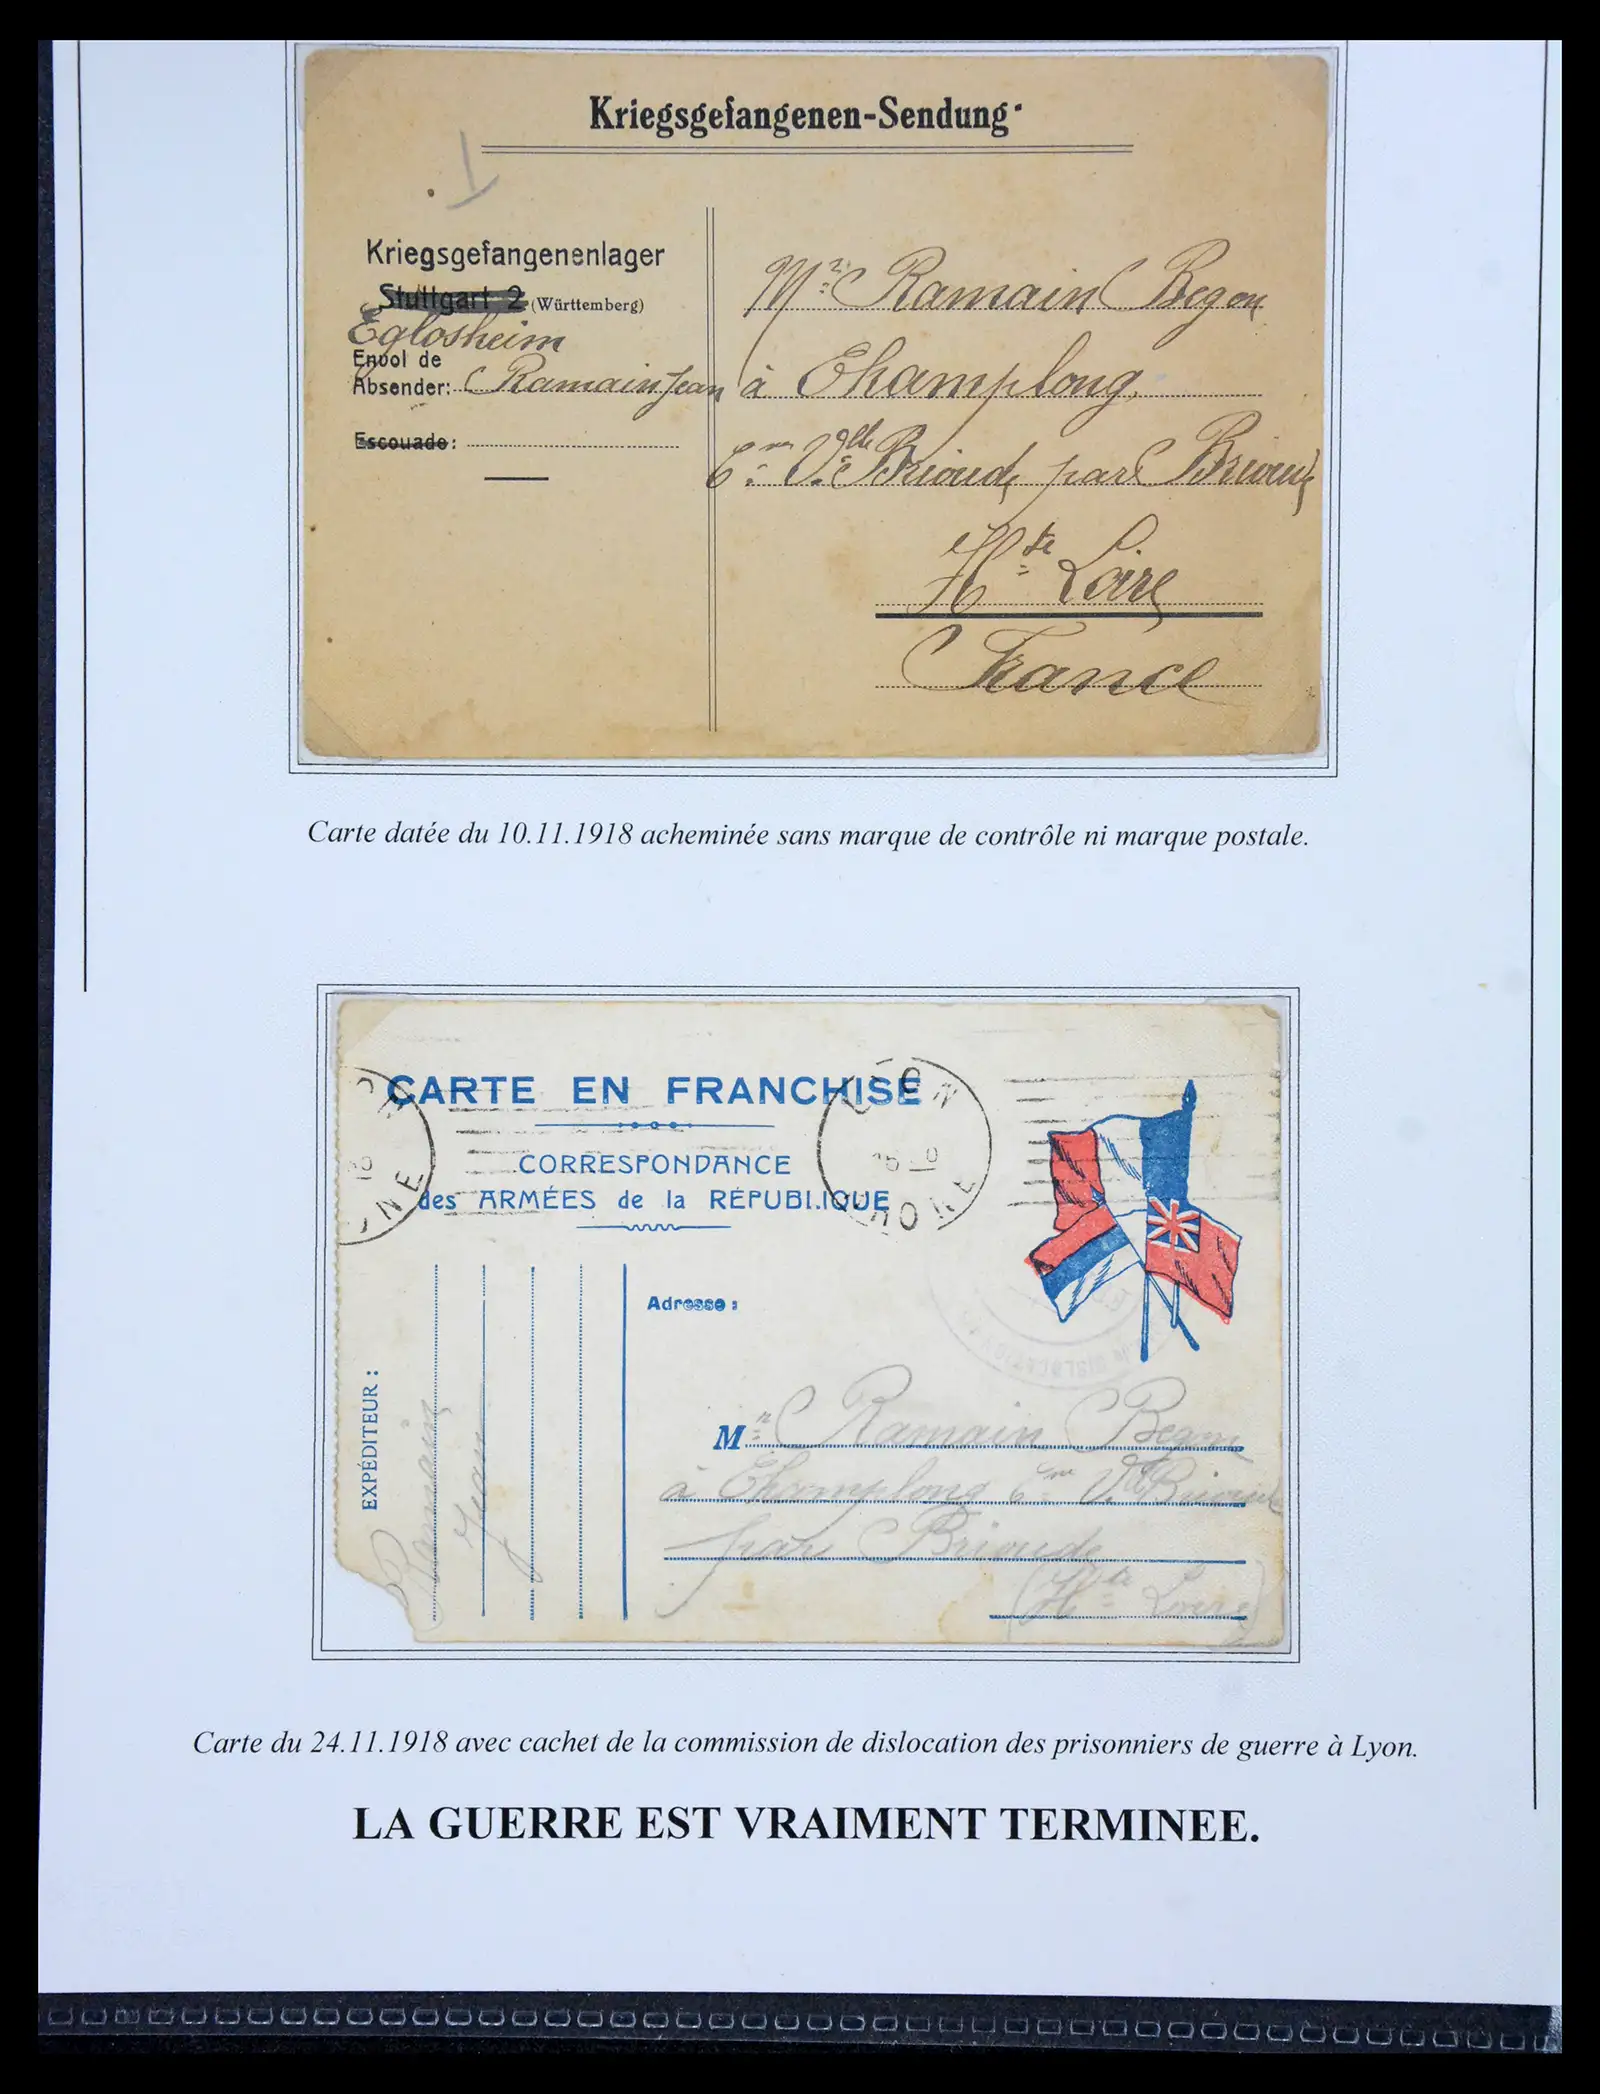 Kriegsgefangenen-Sendung
Kriegsgefangenenlager
Stuttgart 2 (Württemberg)
Eglosheim
Envoi de
Absender: Ramain Jean
Escouade:
Mr Ramain Begon
à Champlong,
Cne Vlle Brioude par Brioude
Hte Loire
France
Carte datée du 10.11.1918 acheminée sans marque de contrôle ni marque postale.
CARTE EN FRANCHISE
CORRESPONDANCE
des ARMÉES de la RÉPUBLIQUE
LYON
RHONE
Adresse :
EXPÉDITEUR :
Ramain
Jean
Mr Ramain Begon
à Champlong Cne Vlle Brioude
par Brioude
(Hte Loire)
Carte du 24.11.1918 avec cachet de la commission de dislocation des prisonniers de guerre à Lyon.
LA GUERRE EST VRAIMENT TERMINEE.